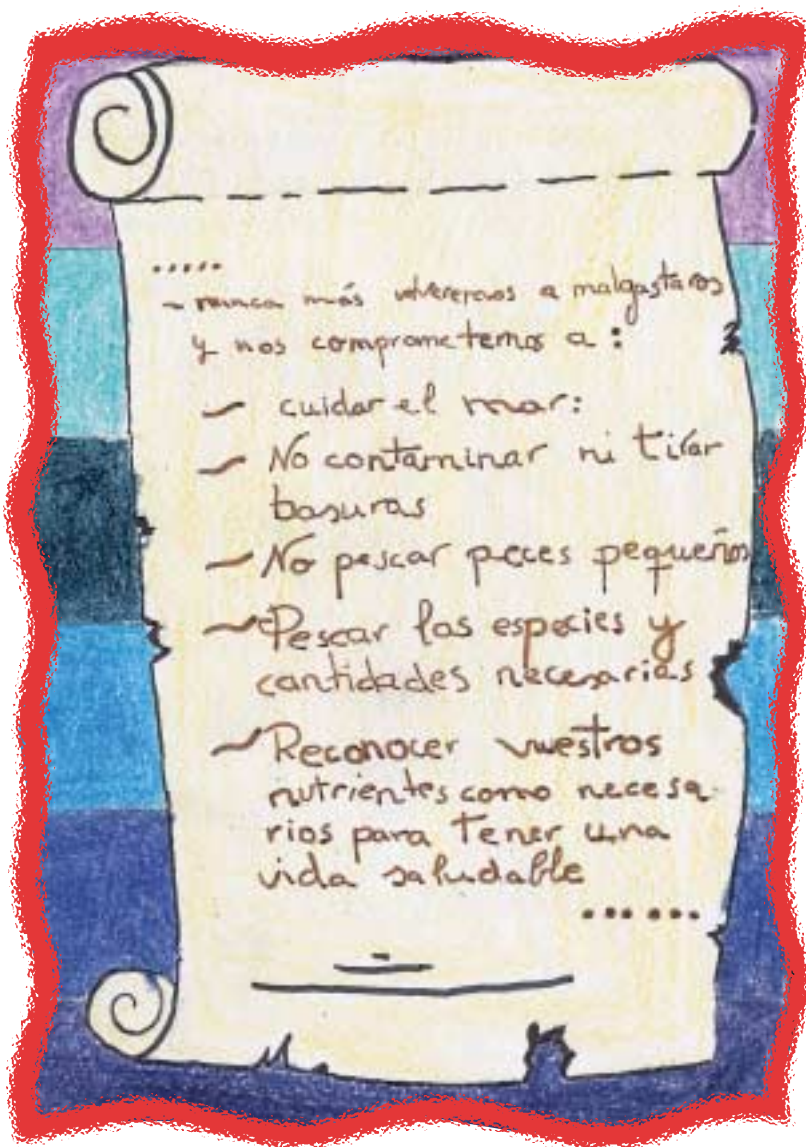 .....
- nunca más volveremos a malgastaros
y nos comprometemos a :
- cuidar el mar:
- No contaminar ni tirar
basuras
- No pescar peces pequeños
- Pescar las especies y
cantidades necesarias
- Reconocer vuestros
nutrientes como necesa-
rios para tener una
vida saludable
......